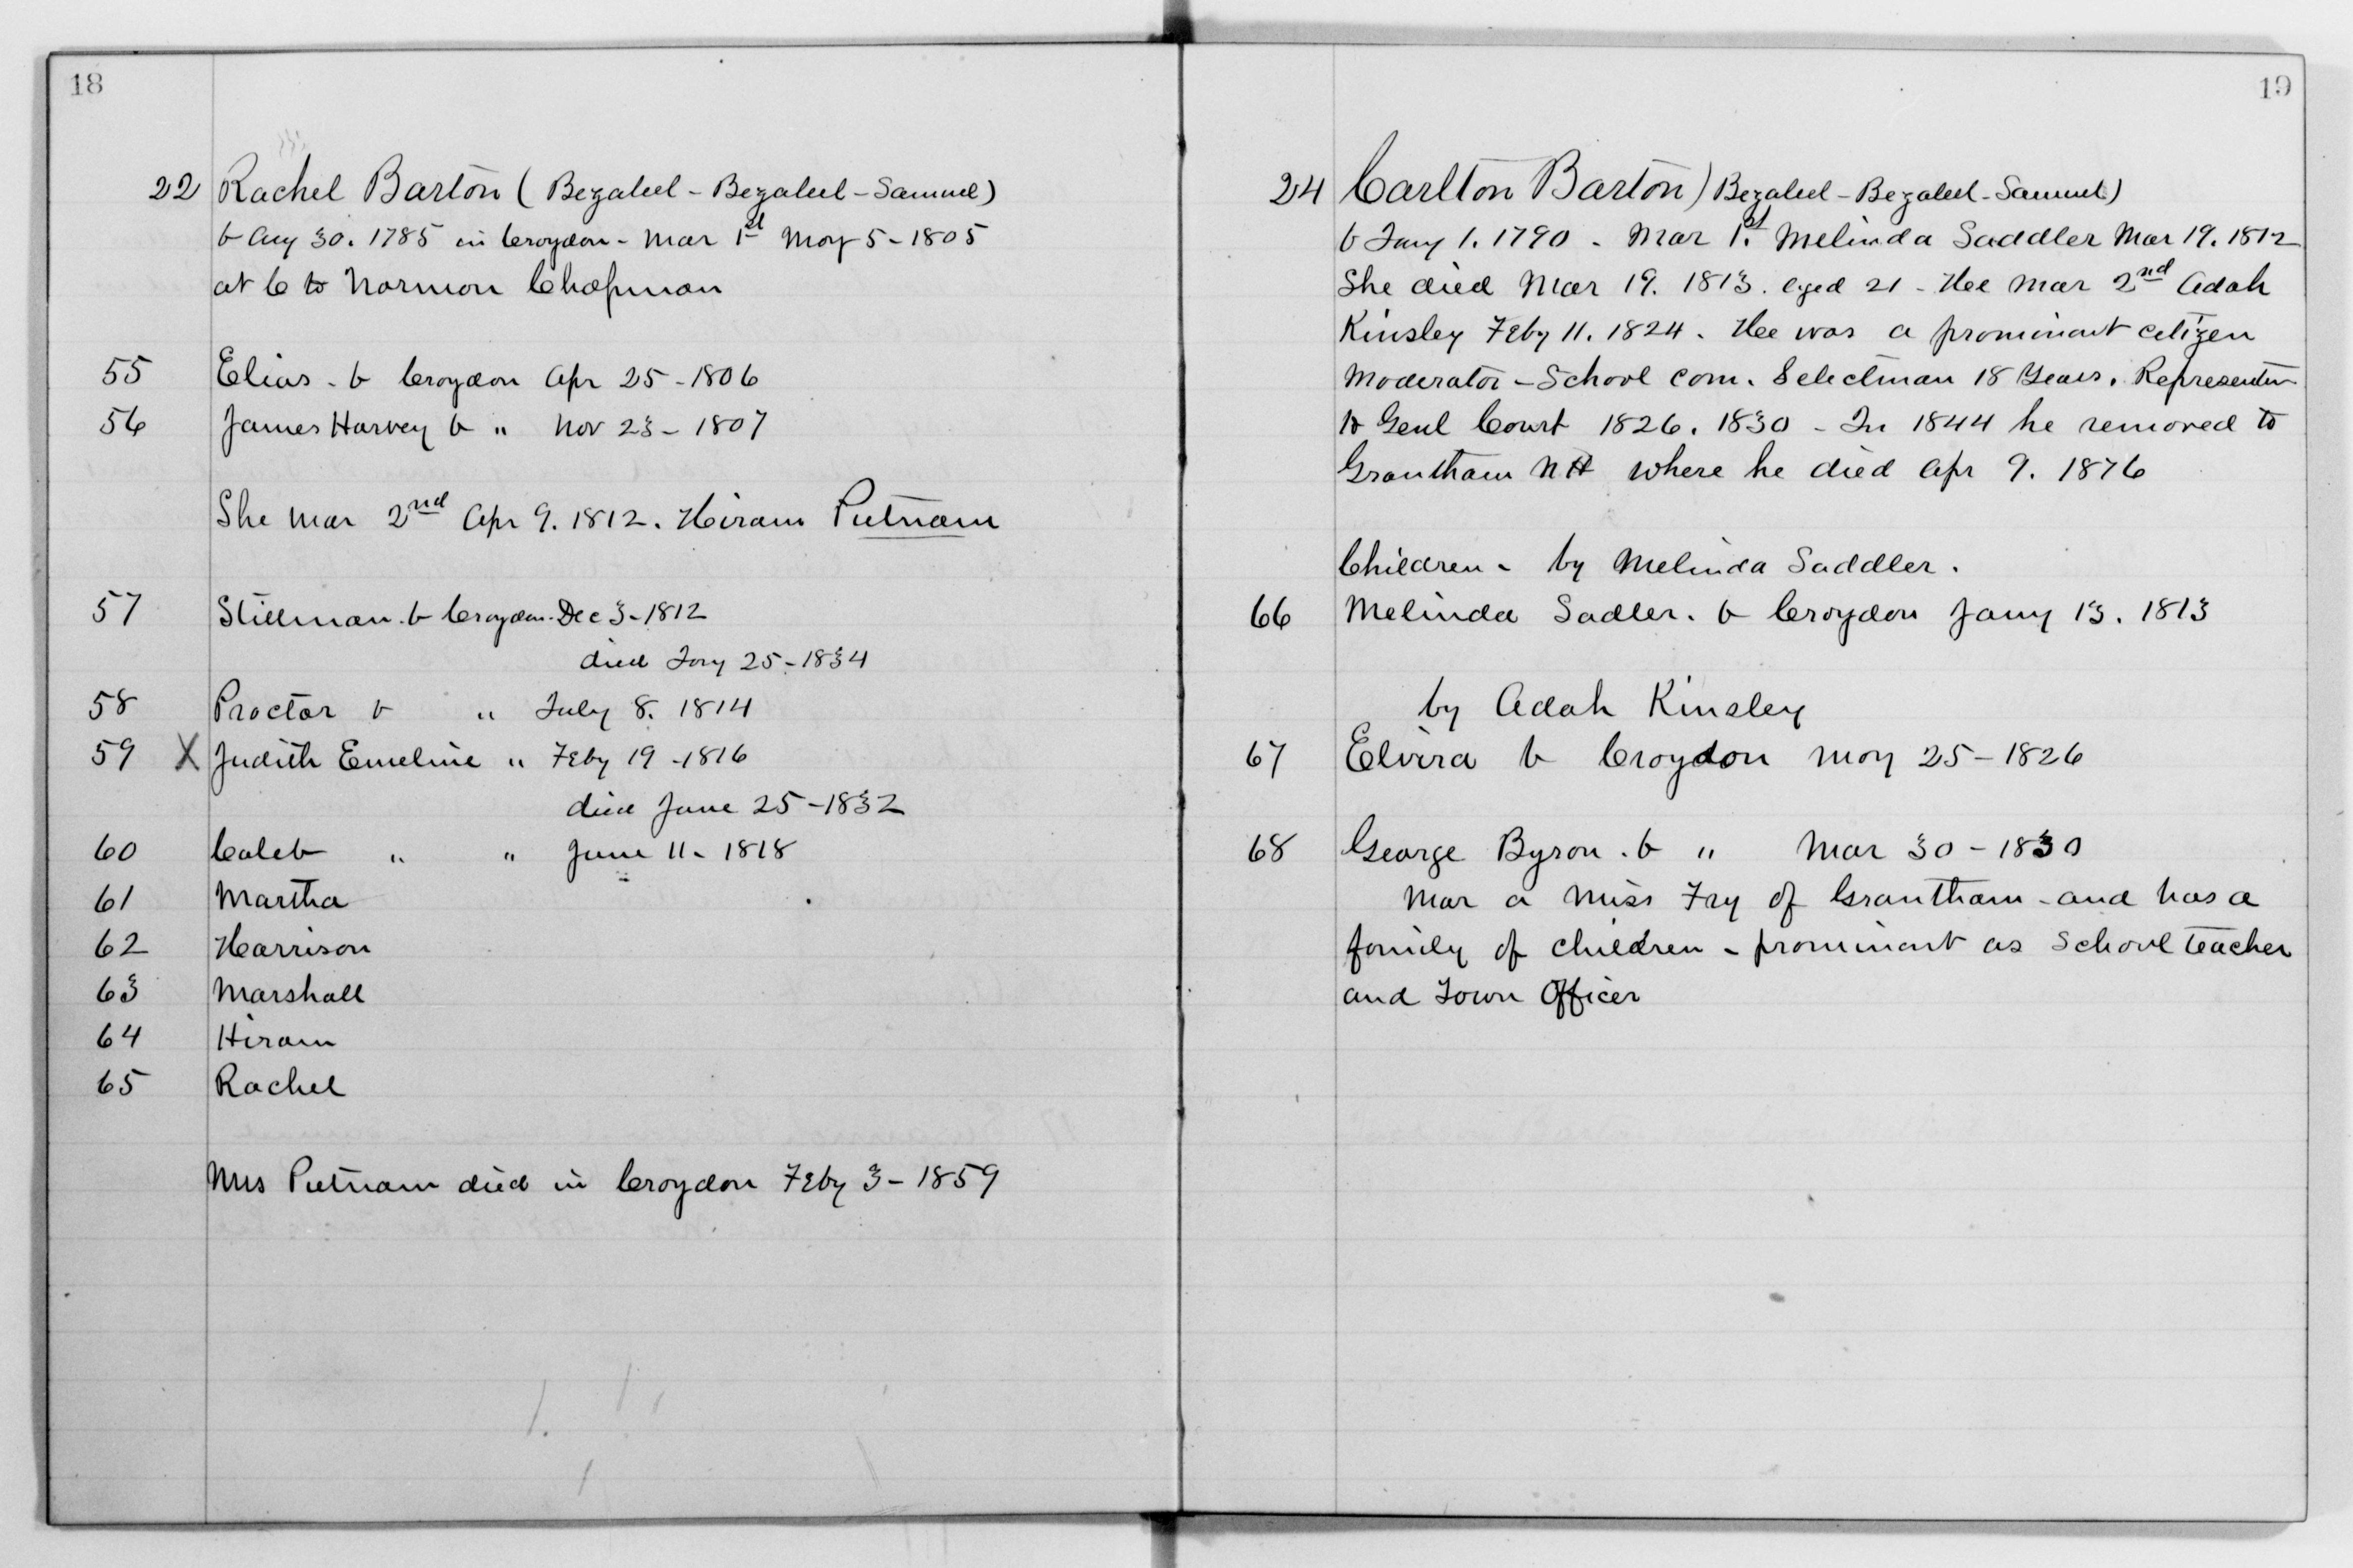 18
22 Rachel Barton ( Bezaleel - Bezaleel - Samuel)
b Aug 30. 1785 in Croydon - Mar 1st May 5 - 1805
at C to Norman Chapman
55 Elias - b Croydon Apr 25 - 1806
56 James Harvey b " Nov 23 - 1807
She mar 2nd Apr 9. 1812. Hiram Putnam
57 Stillman. b Croydon. Dec 3 - 1812
died Jany 25 - 1834
58 Proctor b " July 8. 1814
59 X Judith Emeline " Feby 19 - 1816
died June 25 - 1832
60 Caleb " " June 11 - 1818
61 Martha
62 Harrison
63 Marshall
64 Hiram
65 Rachel
Mrs Putnam died in Croydon Feby 3 - 1859
19
24 Carlton Barton ) Bezaleel - Bezaleel - Samuel )
b Jany 1. 1790 - Mar 1st Melinda Saddler Mar 19. 1812
She died Mar 19. 1813. Aged 21 - Hee mar 2nd Adah
Kinsley Feby 11. 1824. Hee was a prominant citizen
Moderator - School Com. Selectman 18 Years.
to Genl Court 1826. 1830 - In 1844 he removed to
Grantham NH where he died Apr 9. 1876
Children - by Melinda Saddler.
66 Melinda Sadler. b Croydon Jany 13. 1813
by Adah Kinsley
67 Elvira b Croydon May 25 - 1826
68 George Byron. b " Mar 30 - 1830
Mar a Miss Fry of Grantham - and has a
family of children - prominant as School teacher
and Town Officer